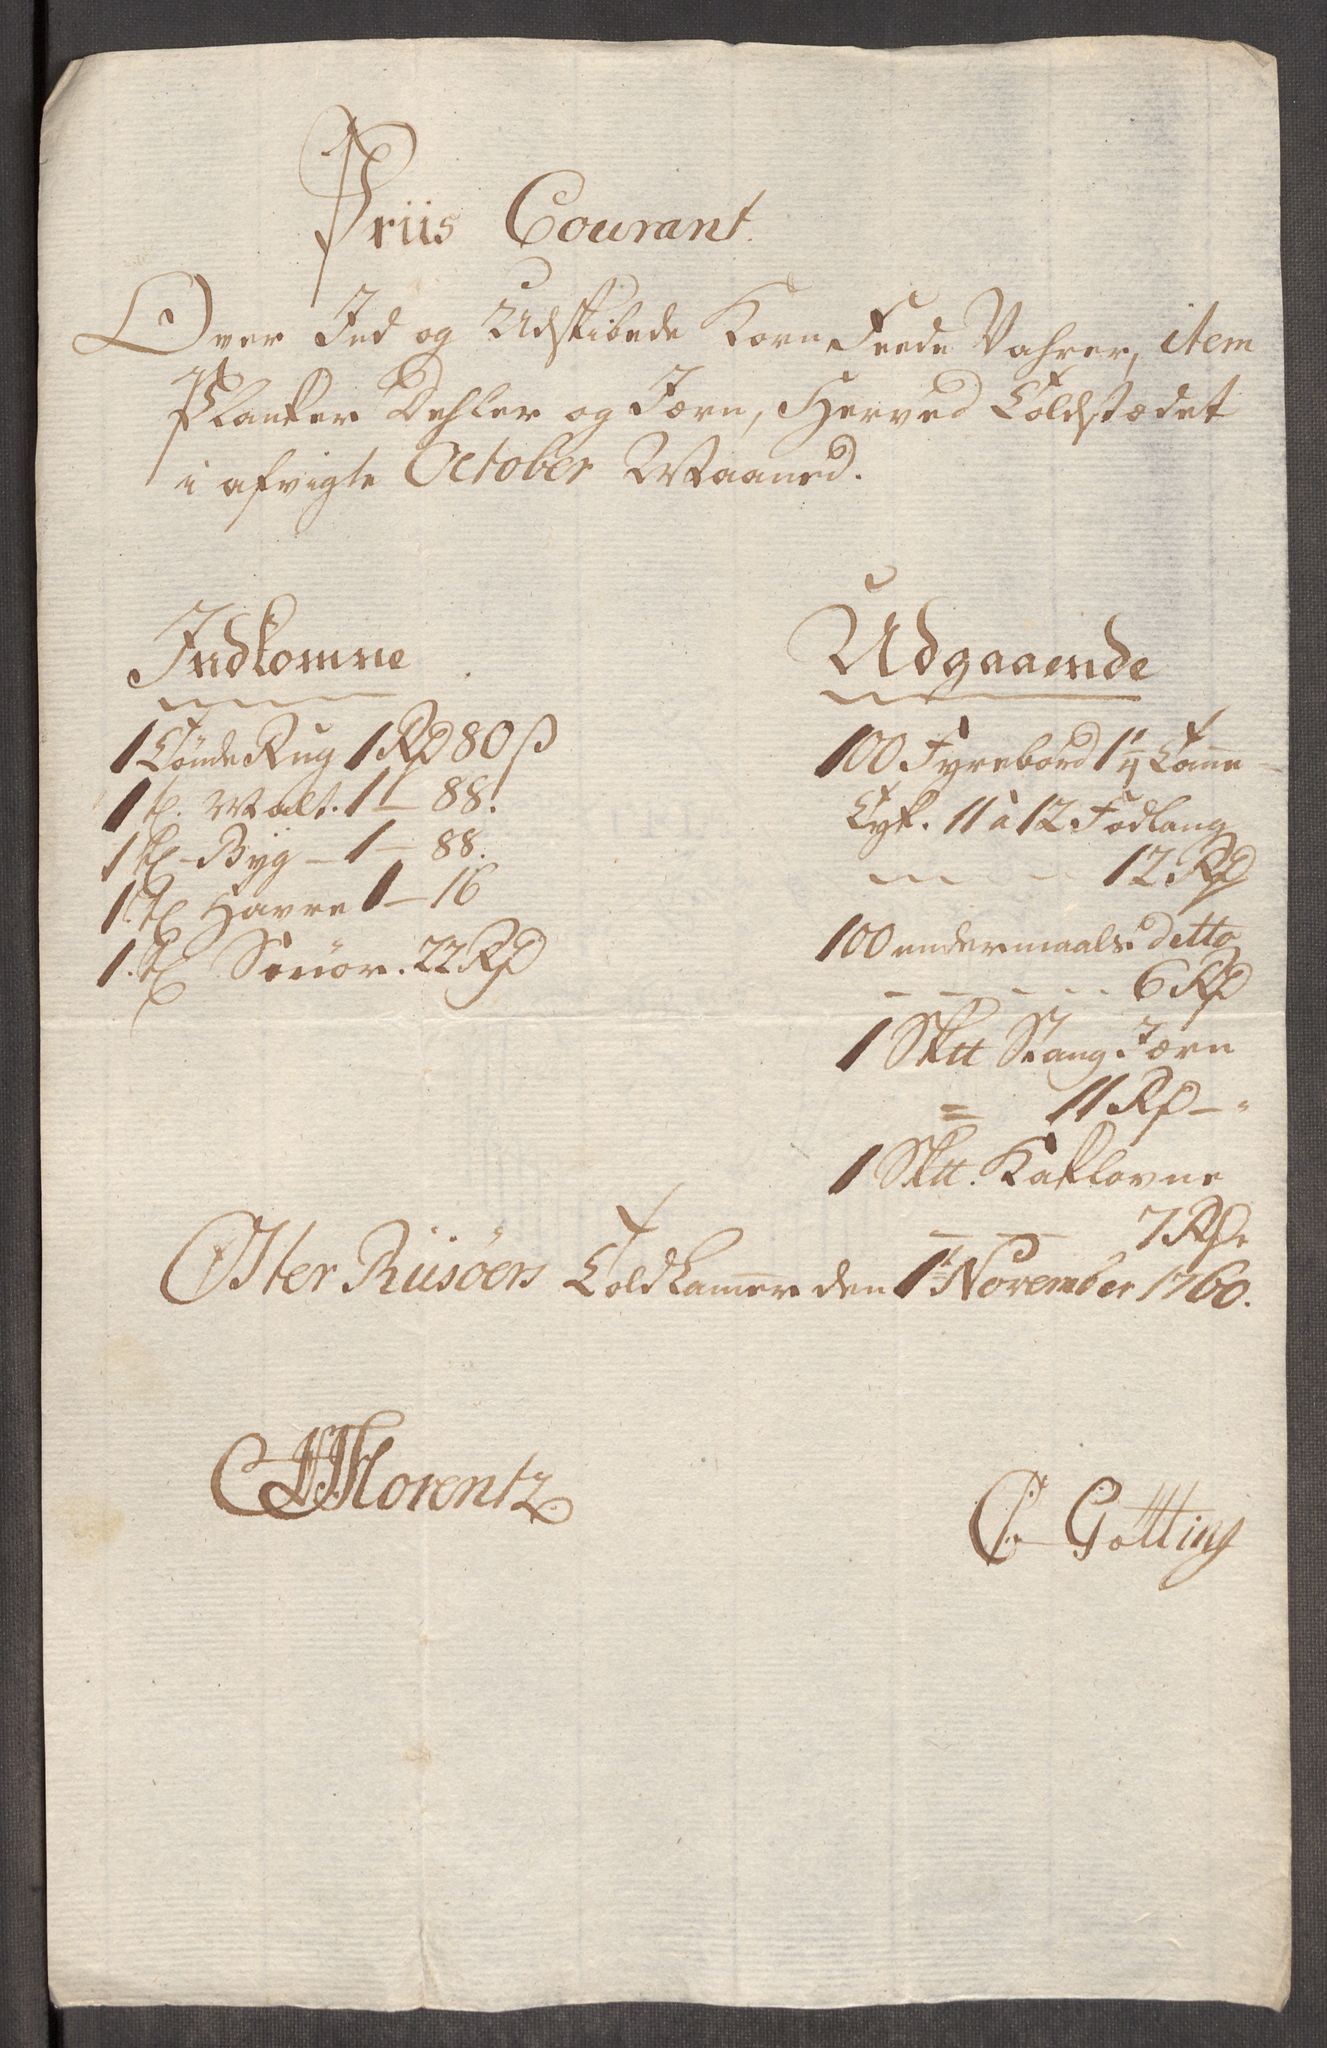 Priis Courant.
Over Ind og Udskibede Korn Feede Vahrer, item
Planker Dehler og Jærn, Herved Toldstædet
i afvigte October Maaned.
Indkomne
1 Tönde Rug 1 Rd 80 ß
1 td. Malt. 1 - 88.
1 td - Byg - 1 - 88.
1. td Havre 1 - 16
1. td Smör. 22 Rd
Udgaaende
100 Fyrrebord 1¼ Tomme
Tyk. 11 à 12 Fod lang
12 Rd
100 undermaals ditto
6 Rd
1 Sktt Stang Jærn
= 11 Rd -
1 Sktt. Kaklovne
7 Rd
Oster Riisöers Toldkamer den 1t November 1760.
Florentz
C. Gøtting